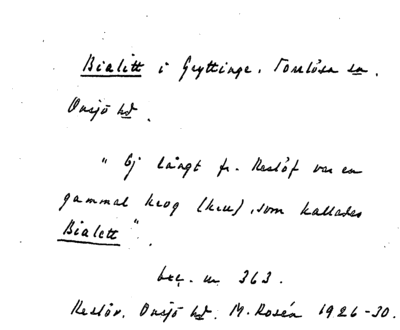 Bialitt i Gryttinge. Torrlösa sn.
Onsjö hd.
" Ej långt fr. Reslöf var en
gammal krog (kru), som kallades
Bialett ".
acc. nr 363.
Reslöv. Onsjö hd. M. Rosén 1926-30.